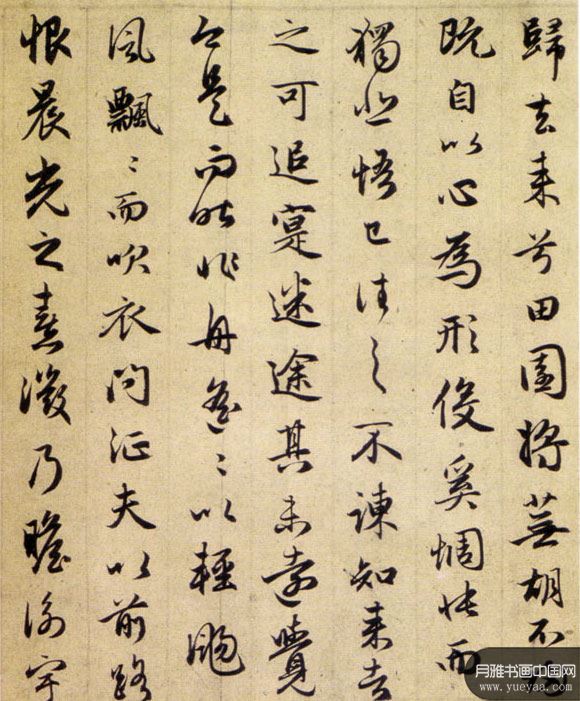 歸去来兮田園将蕪胡不歸
既自以心為形役奚惆悵而
獨悲悟已往之不諫知来者
之可追寔迷途其未遠覺
今是而昨非舟遥〻以輕颺
風飄〻而吹衣問征夫以前路
恨晨光之熹微乃瞻衡宇
月雅书画中国网
www.yueyaa.com